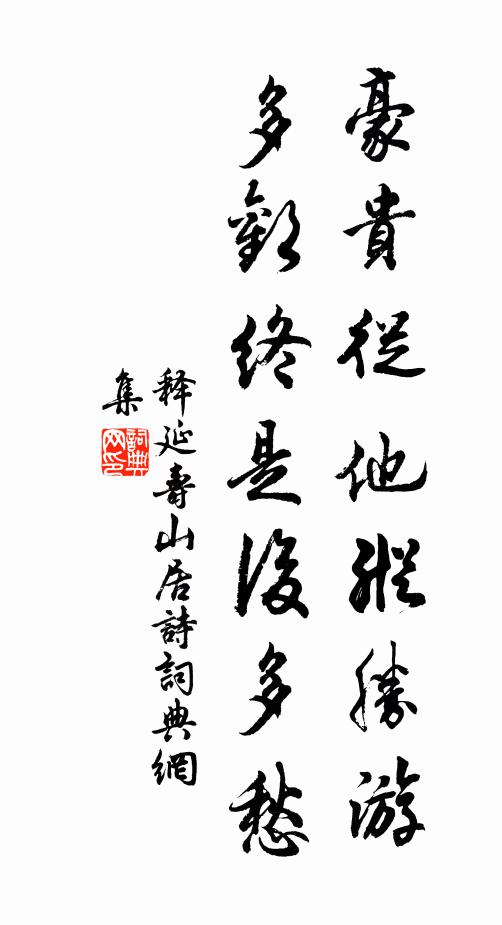 豪貴從他縱勝游
多歡終是後多愁
釋延壽山居詩詞典網
集
詞典網印